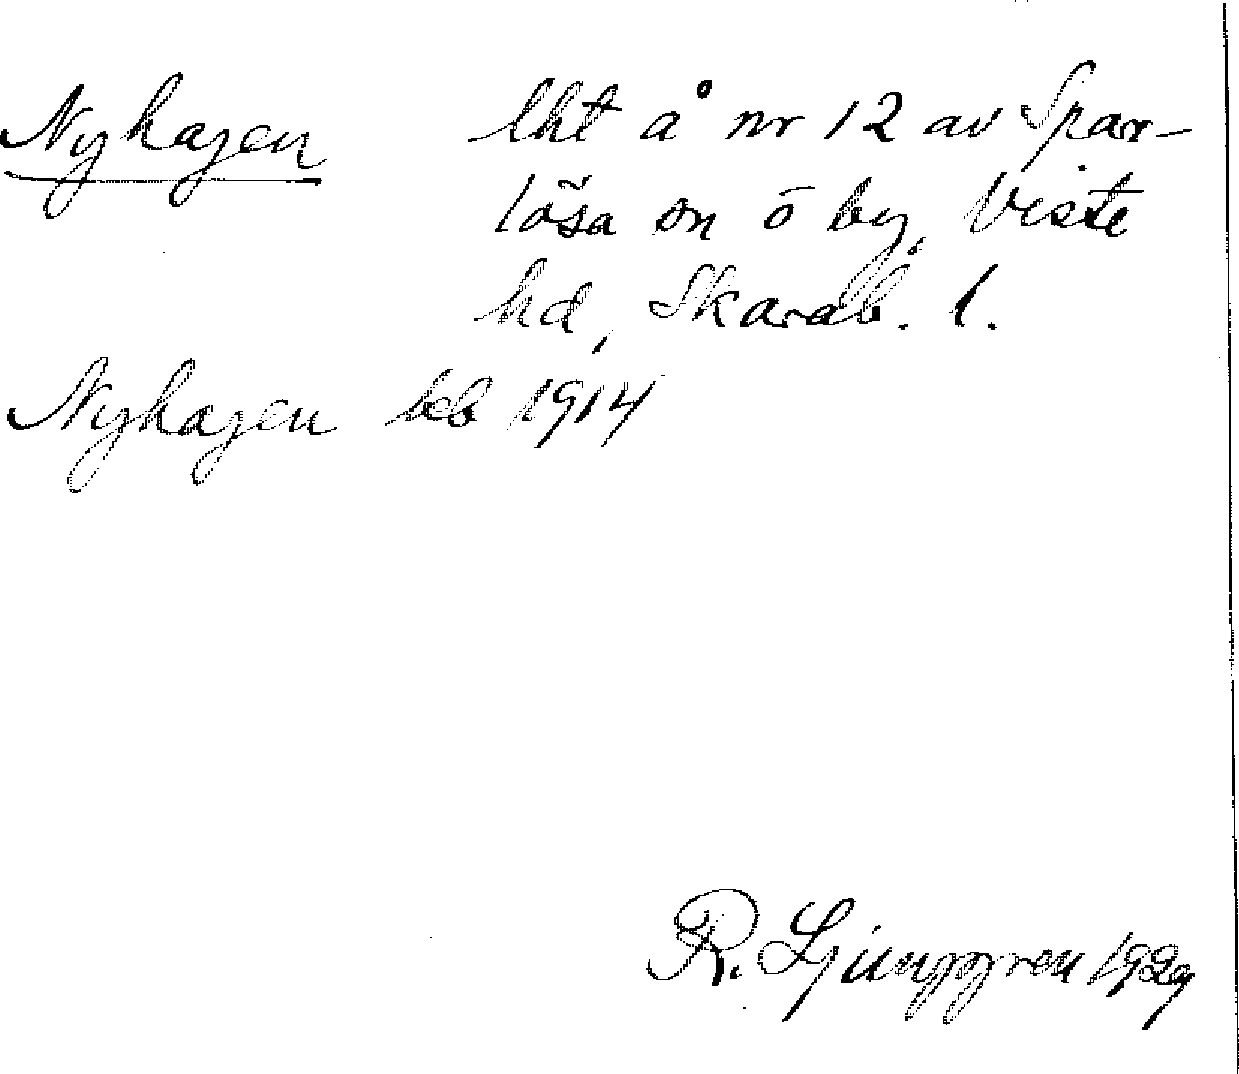 Nyhagen lht å nr 12 av Spar-
lösa sn ö by, Viste
hd, Skarab. l.
Nyhagen beb 1914
R. Ljunggren 1929